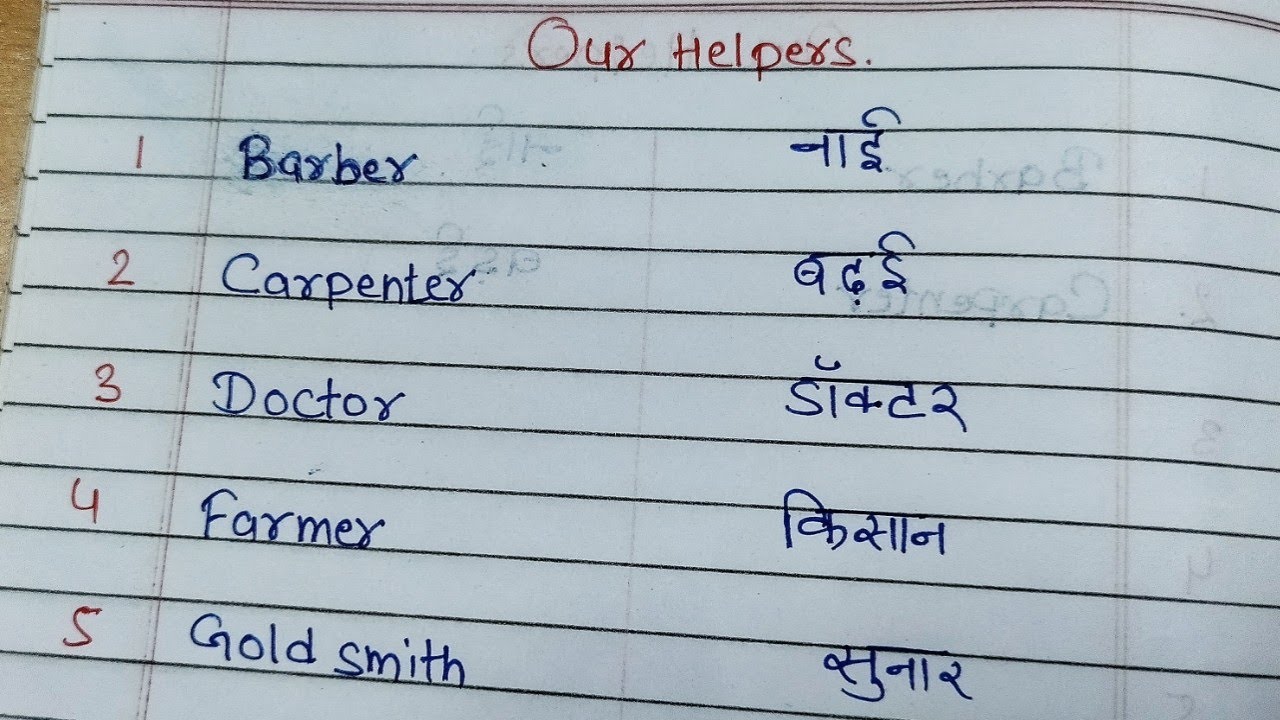 Our Helpers.
1 Barber नाई
2 Carpenter बढ़ई
3 Doctor डॉक्टर
4 Farmer किसान
5 Gold smith सुनार